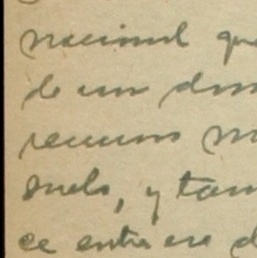 nacional que
de un dom
recursos na
suelo, y tam
ce entre ese d